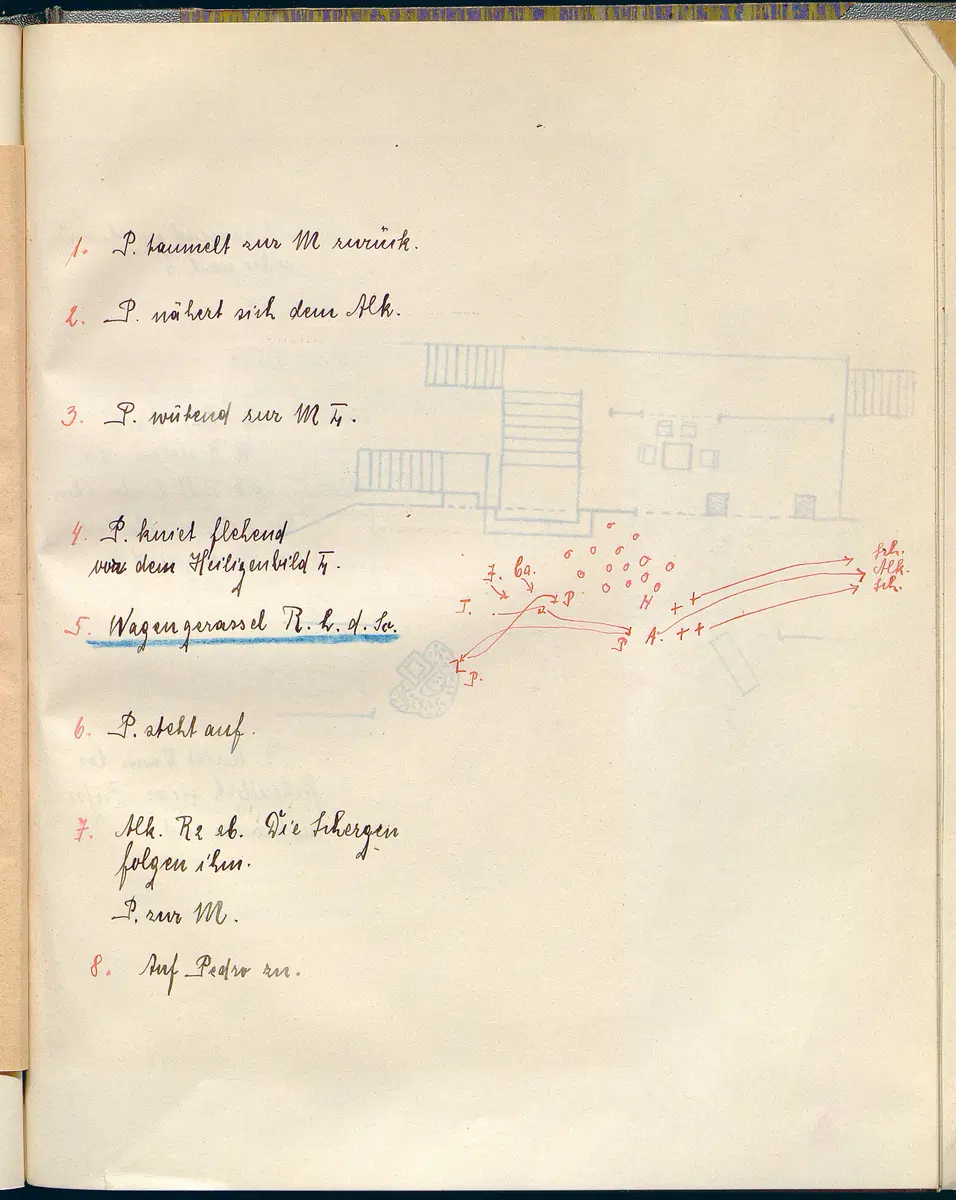 1. P. taumelt zur M zurück.
2. P. nähert sich dem Alk.
3. P. wütend zur M
4. P. kniet flehend
vor dem Heiligenbild
5. Wagengerassel R. h. d. Sc.
6. P. steht auf.
7. Alk. R2 ab. Die Schergen
folgen ihm.
P. zur M.
8. Auf Pedro zu.
Sch.
Alk.
Sch.
J. Ca.
P
J.
H
P
A.
P.